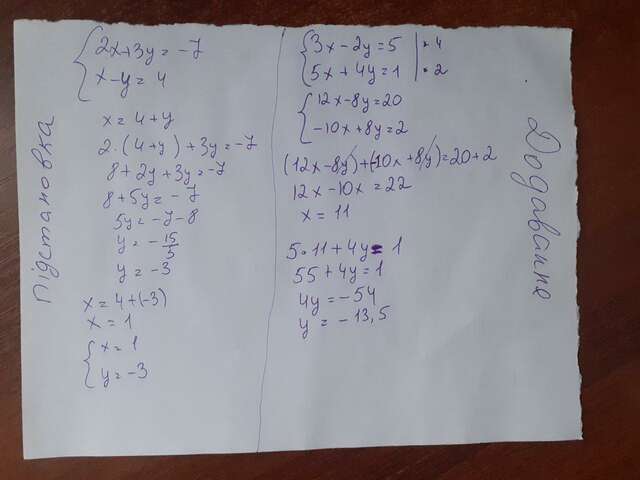 Підстановка
2x+3y=-7
x-y=4
x=4+y
2·(4+y)+3y=-7
8+2y+3y=-7
8+5y=-7
5y=-7-8
y=-15/5
y=-3
x=4+(-3)
x=1
x=1
y=-3
Додавання
3x-2y=5 |·4
5x+4y=1 |·2
12x-8y=20
-10x+8y=2
(12x-8y)+(-10x+8y)=20+2
12x-10x=22
x=11
5·11+4y=1
55+4y=1
4y=-54
y=-13,5